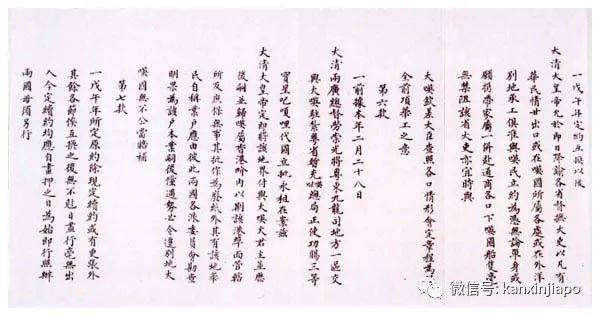 一戊午年定約互換以後
大清大皇帝允於即日降諭各省督撫大吏以凡有
華民情甘出口或在暎國所屬各處或在外洋
別地承工俱准與暎民立約為憑無論單身或
願攜帶家屬一併赴通商各口下暎國船隻毫
無禁阻該省大吏亦宜時與
大暎欽差大臣查照各口情形會定章程為
全前項華工之意
第六款
一前據本年二月二十八日
大清兩廣總督勞崇光將粵東九龍司地方一區交
與大暎駐紮粵省暫充總局正使功賜三等
寶星吧嗄嘿代國立批永租在案茲
大清大皇帝定即將該地界付與大暎大君主並歷
後嗣並歸暎屬香港界內以期該港埠面管轄
所及庶保無事其批作為廢紙外其有該地華
民自稱業戶應由彼此兩國各派委員會勘查
明果為該戶本業嗣後倘遇勢必令遷別地大
暎國無不公當賠補
第七款
一戊午年所定原約除現定續約或有更張外
其餘各節俟互換之後無不尅日盡行毫無出
入今定續約均應自畫押之日為始即行照辦
兩國毋須另行
微信号: kanxinjiapo